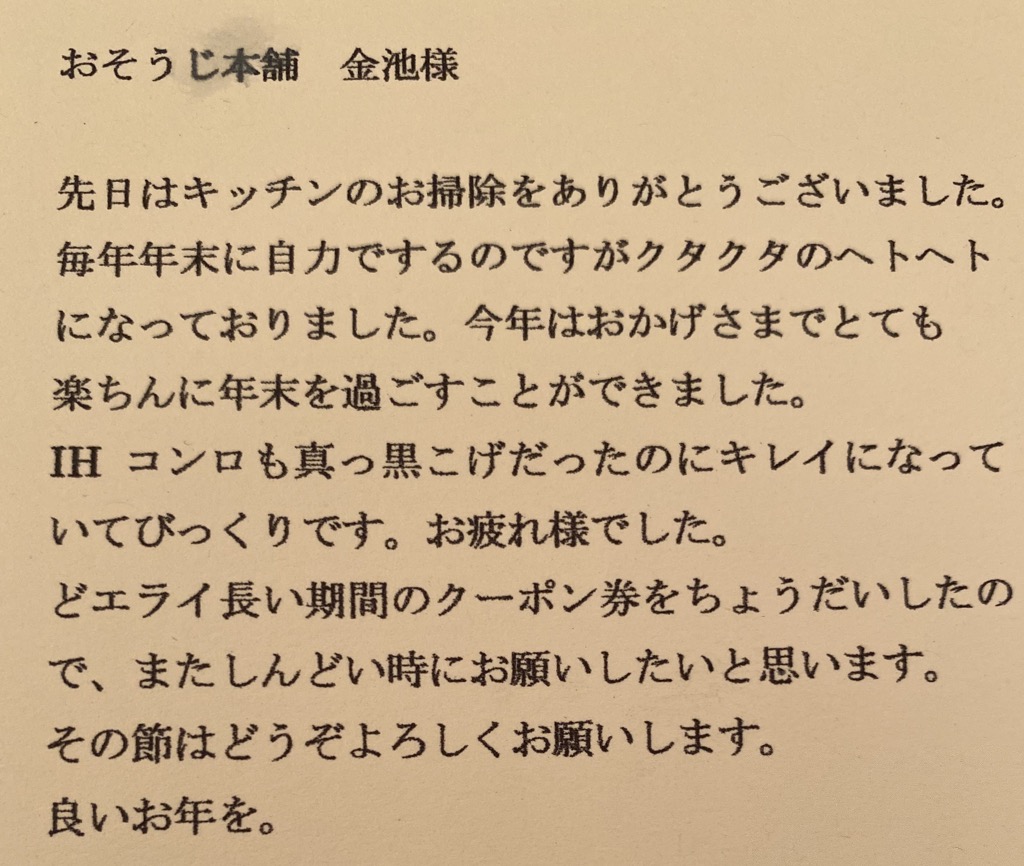 おそうじ本舗　金池様
先日はキッチンのお掃除をありがとうございました。
毎年年末に自力でするのですがクタクタのヘトヘト
になっておりました。今年はおかげさまでとても
楽ちんに年末を過ごすことができました。
IH コンロも真っ黒こげだったのにキレイになって
いてびっくりです。お疲れ様でした。
どエライ長い期間のクーポン券をちょうだいしたの
で、またしんどい時にお願いしたいと思います。
その節はどうぞよろしくお願いします。
良いお年を。